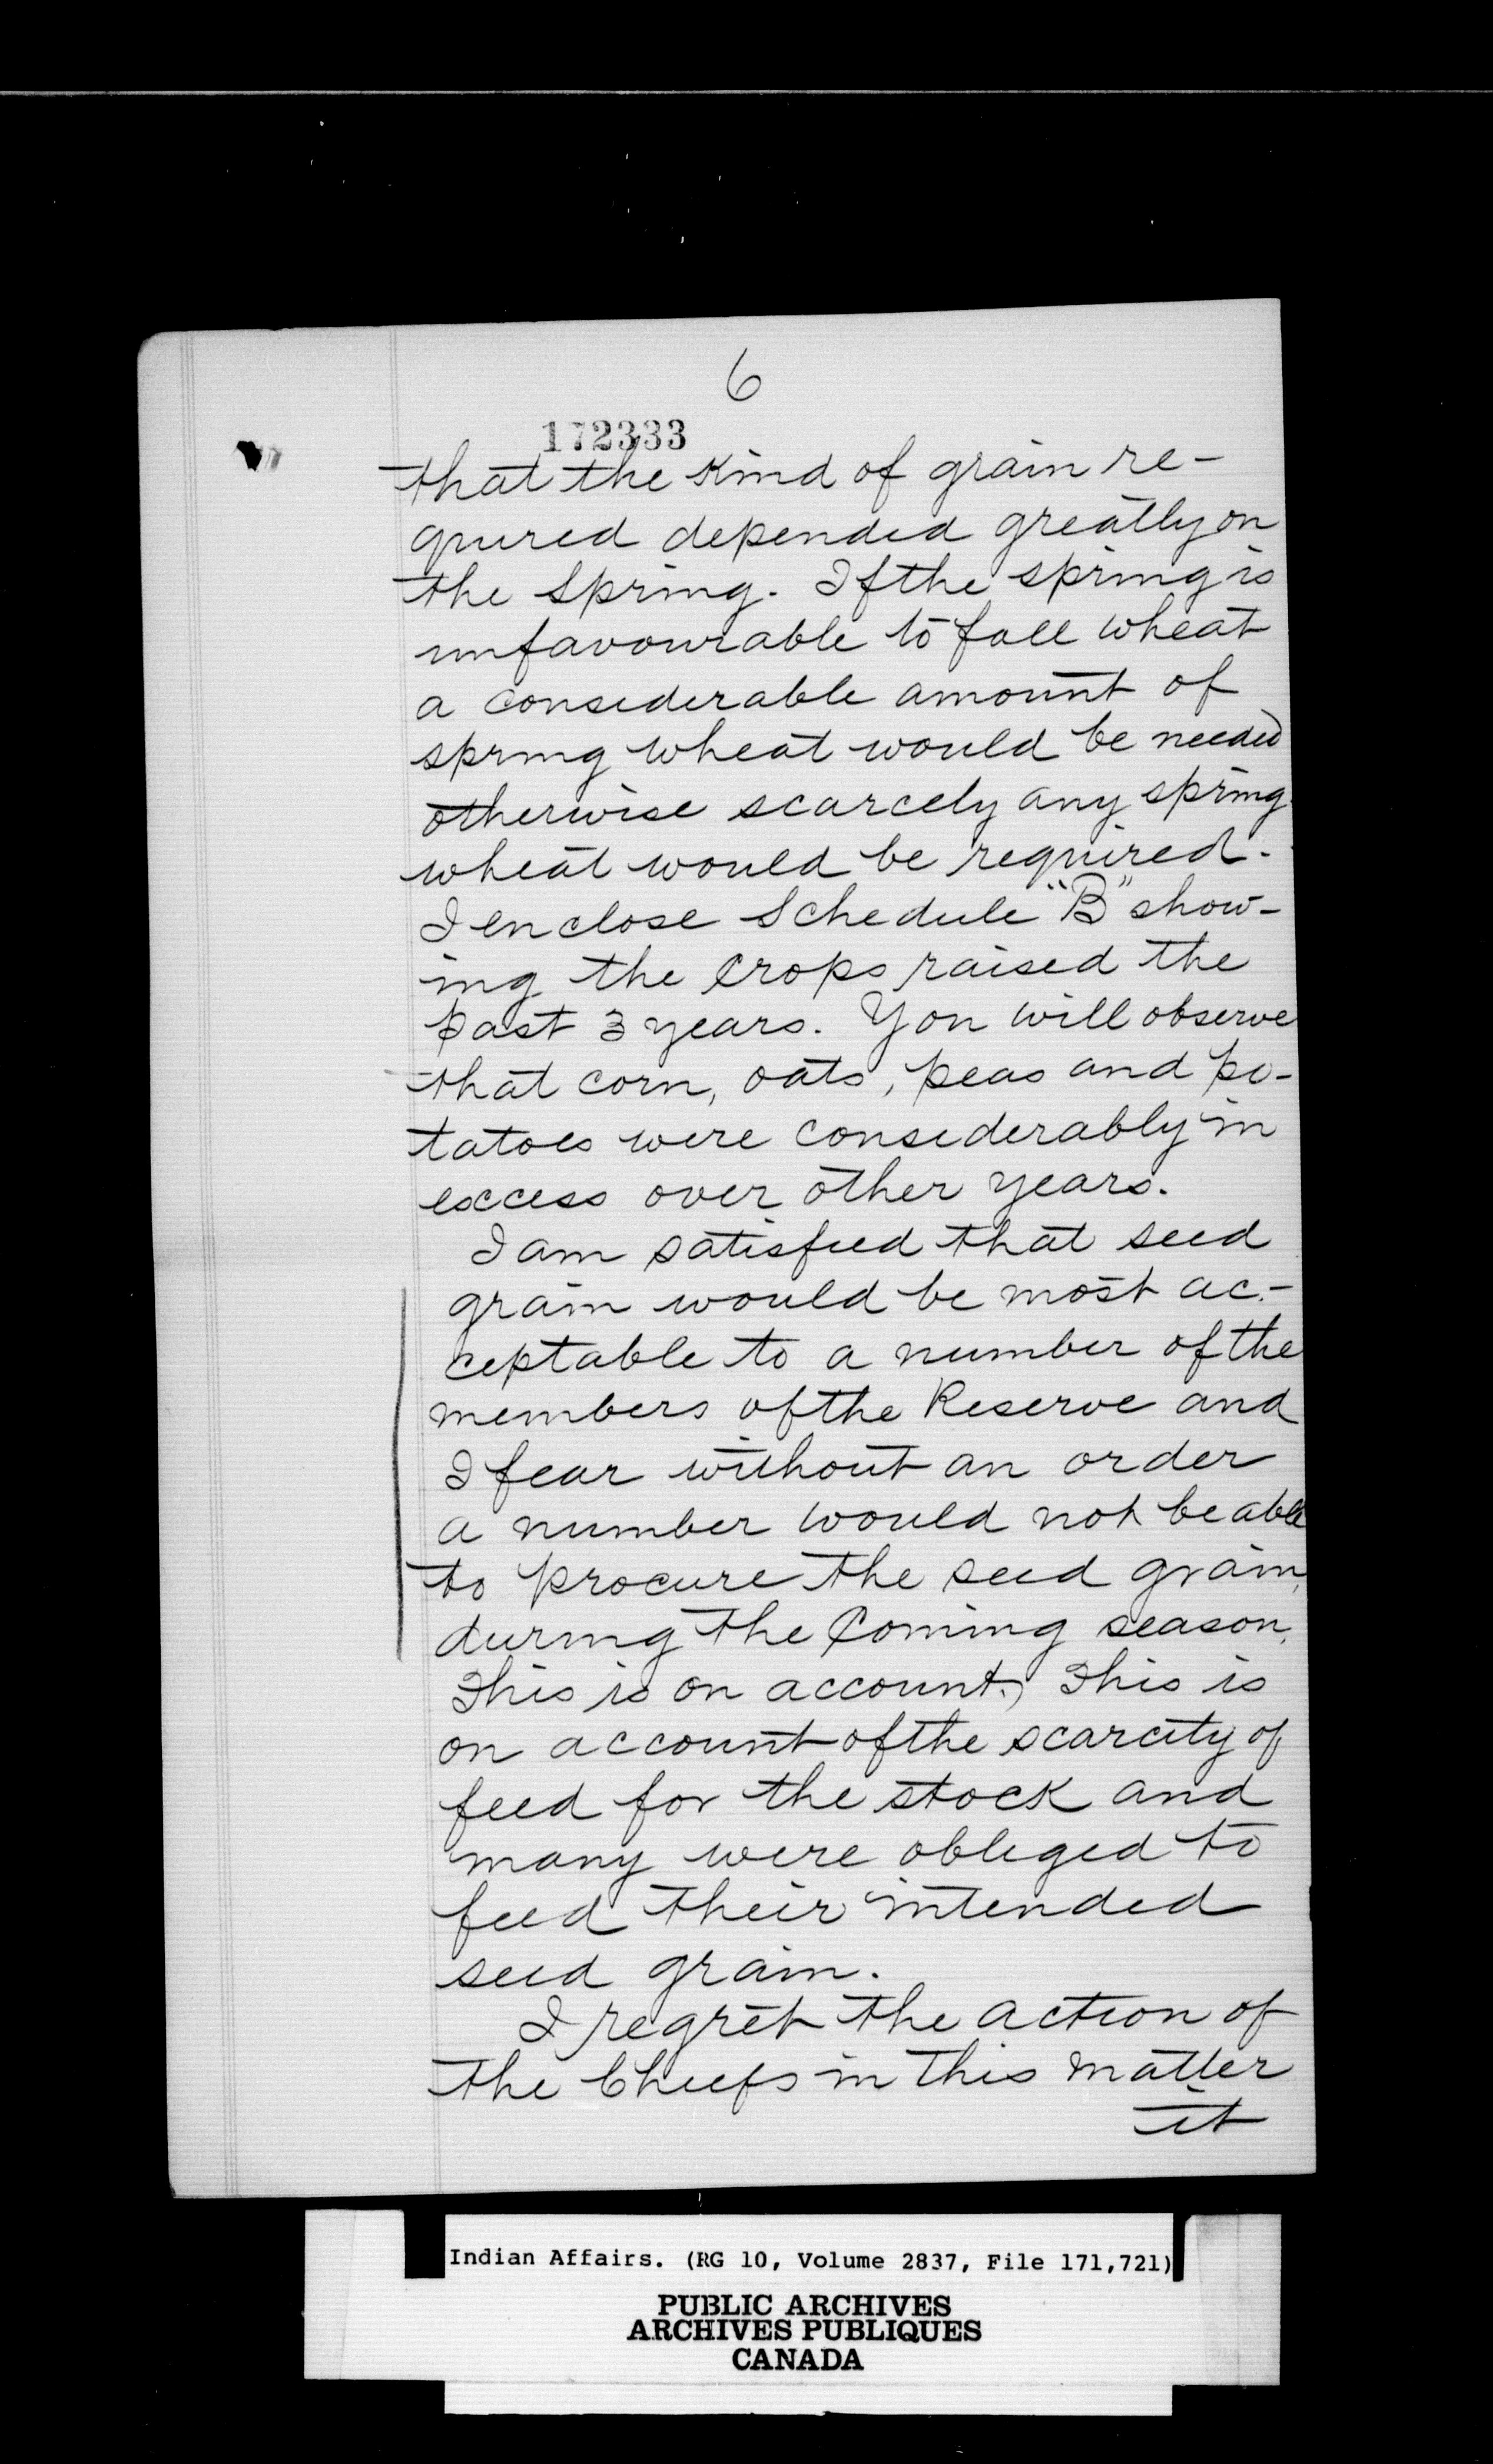 6
172333
that the kind of grain re-
quired depended greatly on
the Spring. If the spring is
unfavourable to fall wheat
a considerable amount of
spring wheat would be needed
otherwise scarcely any spring
wheat would be required.
I enclose Schedule "B" show-
ing the crops raised the
past 3 years. You will observe
that corn, oats, peas and po-
tatoes were considerably in
excess over other years.
I am satisfied that seed
grain would be most ac-
ceptable to a number of the
members of the Reserve and
I fear without an order
a number would not be able
to procure the seed grain,
during the Coming season.
This is on account.) This is
on account of the scarcity of
feed for the stock and
many were obliged to
feed their intended
seed grain.
I regret the action of
the Chiefs in this matter
it
Indian Affairs. (RG 10, Volume 2837, File 171,721)
PUBLIC ARCHIVES
ARCHIVES PUBLIQUES
CANADA